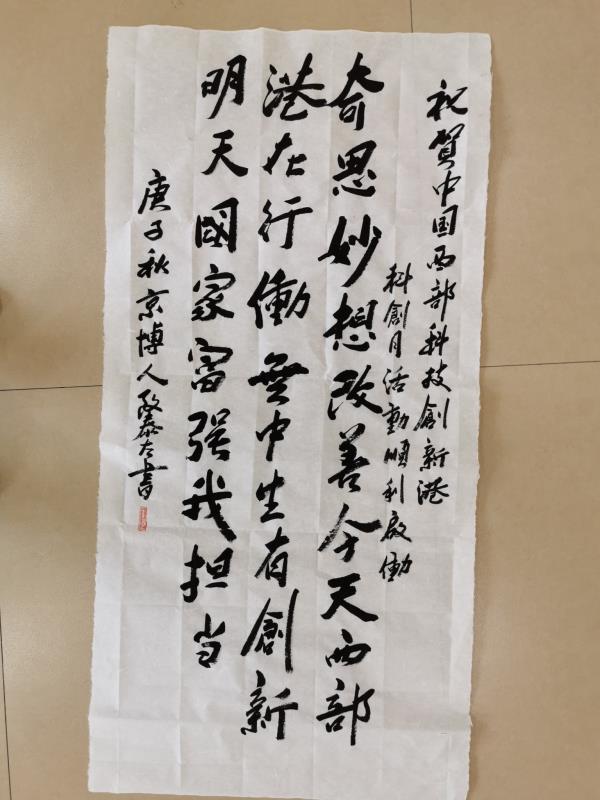 祝賀中国西部科技創新港
科創月活動順利啟働
奇思妙想改善今天西部
港在行働無中生有創新
明天國家富强我担当
庚子秋京博人
書